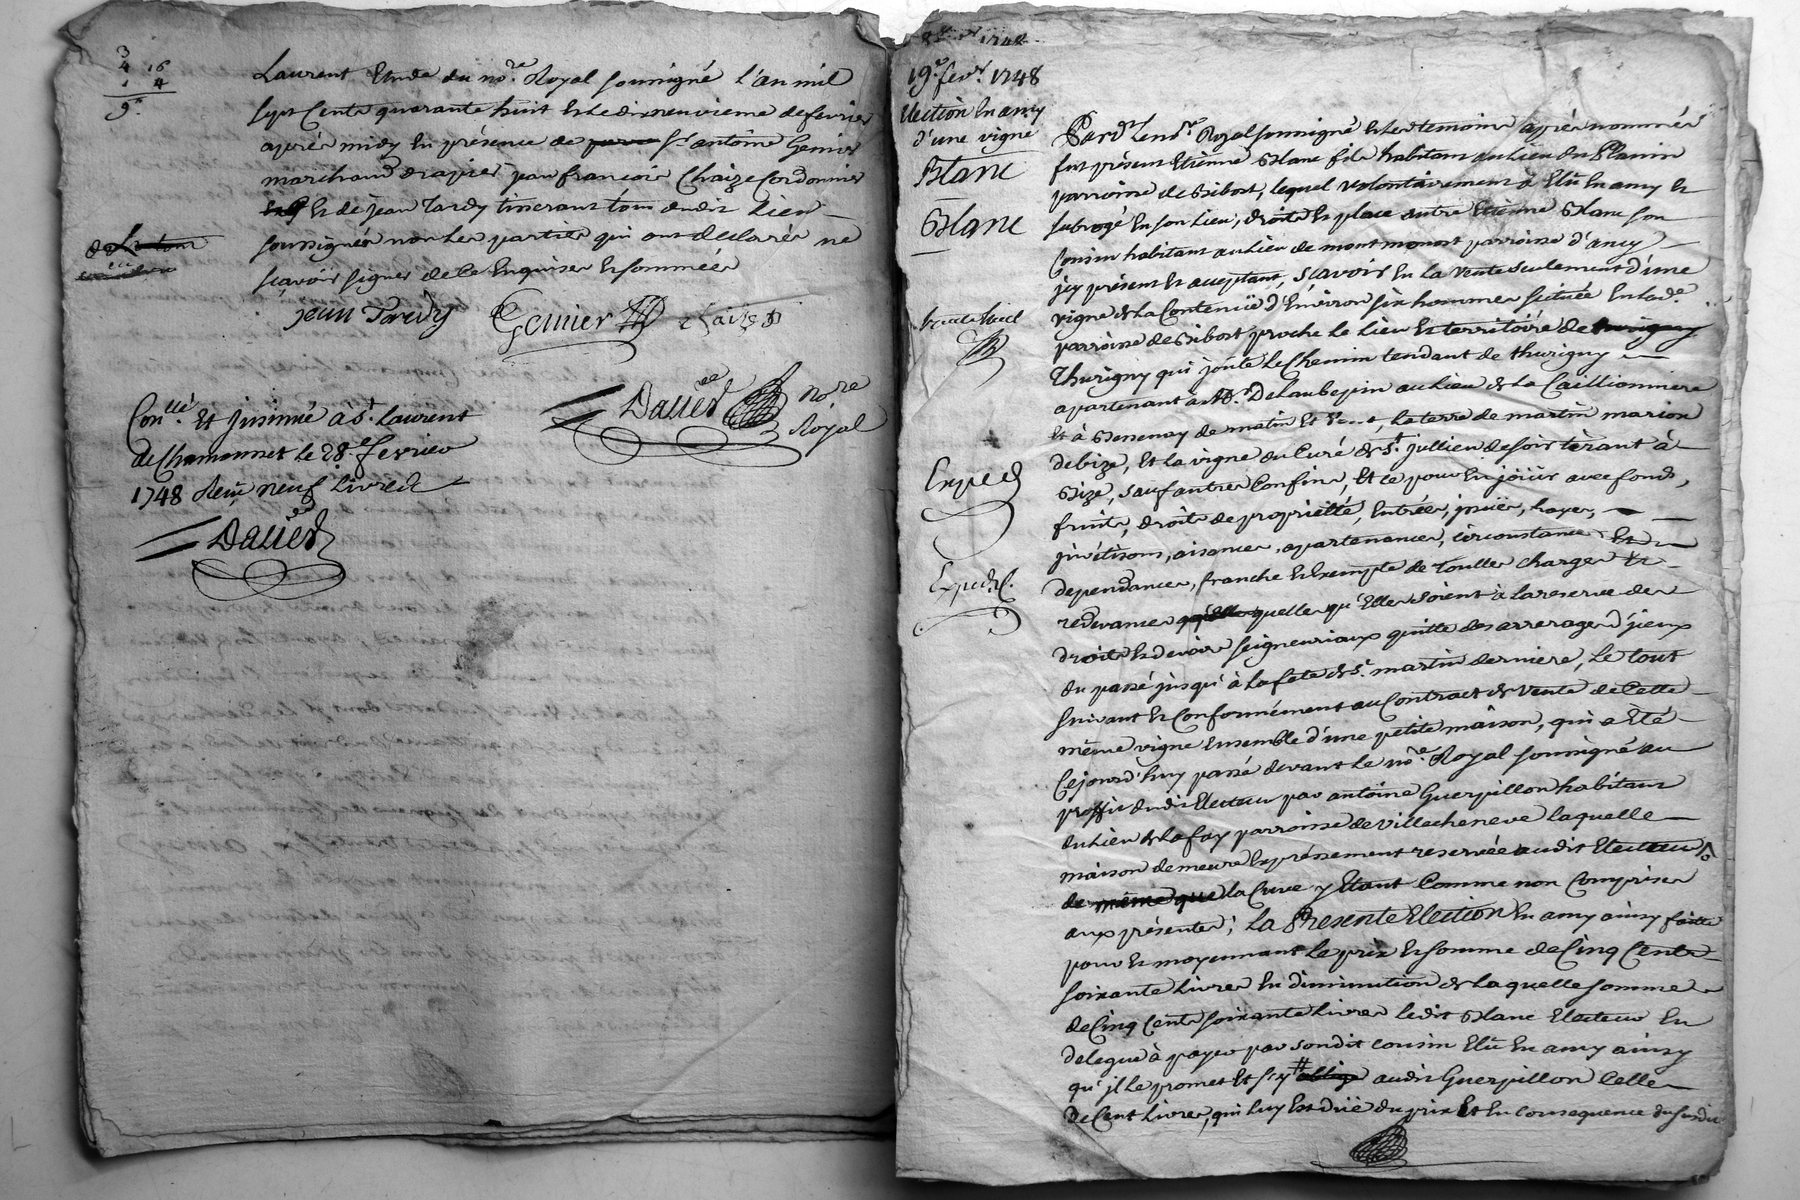 3
4 16
1 4
9
Laurent Etude du no.re Royal soussigné l'an mil
sept Cents quarante huit Et le dixneuvieme de fevrier
aprés midy En présence de sr. antoine Genier
marchand drapier jean françois Chaize Cordonnier
Et de jean Tardy tisserant tous dudit Lieu
soussignés non les parties qui ont déclarés ne
scavoir signer de ce Enquises Et sommées
jean Tardy Genier chaize
Dauer no.re
Royal
Con.llé Et jnsinué à st. Laurent
de Chamousset le 28.e fevrier
1748 Reçu neuf Livres
Dauer
1748
19.e fevr. 1748
Election En amy
d'une vigne
Blanc
Blanc
Exped
Exped.
Pard.t Le no.re Royal soussigné Et les temoins aprés nommés
fut présent Etienne Blanc fils habitant au Lieu du Planin
parroisse de Bibost, lequel volontairement à Elü En amy Et
subrogé En son Lieu, droits Et place autre Etienne Blanc son
Cousin habitant au Lieu de mont monost parroisse d'ancy
jcy présent Et acceptant, scavoir En la vente seulement d'une
vigne de la Contenüe d'Environ six hommes située En lad.e
parroisse de Bibost proche le Lieu Et territoire de
Thurigny qui joute Le Chemin tendant de thurigny
apartenant à Mr. Delaubepin au Lieu de La Caillionniere
Et à Bessenay de matin Et vent, la terre de martin marion
de bize, Et la vigne du Curé de st. jullien de soir tirant à
Bize, sauf autres Confins, Et ce pour En joüir avec fonds,
fruits, droits de proprietté, Entrées, jssües, hayes,
jnvétisons, aisances, apartenances, circonstances Et
dependances, franche Et Exempte de toutes charges Et
redevances quelles qu'Elles soient à la reserve des
droits Et devoirs seigneuriaux quitte des arrerages d'jceux
du passé jusqu'à la fete de st. martin derniere, Le tout
suivant Et Conformément au Contract de vente de Cette
même vigne Ensemble d'une petite maison, qui a Eté
Cejourd'huy passé devant le no.re Royal soussigné au
proffit dudit Electeur par antoine Guerpillon habitant
du Lieu de la fay parroisse de Villecheneve laquelle
maison demeure Expréssement reservée audit Electeur
de même que la Cuve y Etant Comme non Comprises
aux présentes; La Présente Election En amy ainsy faitte
pour Et moyennant Le prix Et somme de Cinq Cents
soixante Livres En diminution de Laquelle somme
de Cinq Cents soixante livres ledit Blanc Electeur En
delegue à payer par sondit cousin Elü En amy ainsy
qu'jl le promet Et s'y oblige audit Guerpillon Celle
de Cent Livres, qui luy Est düe du prix Et En consequence du susdit